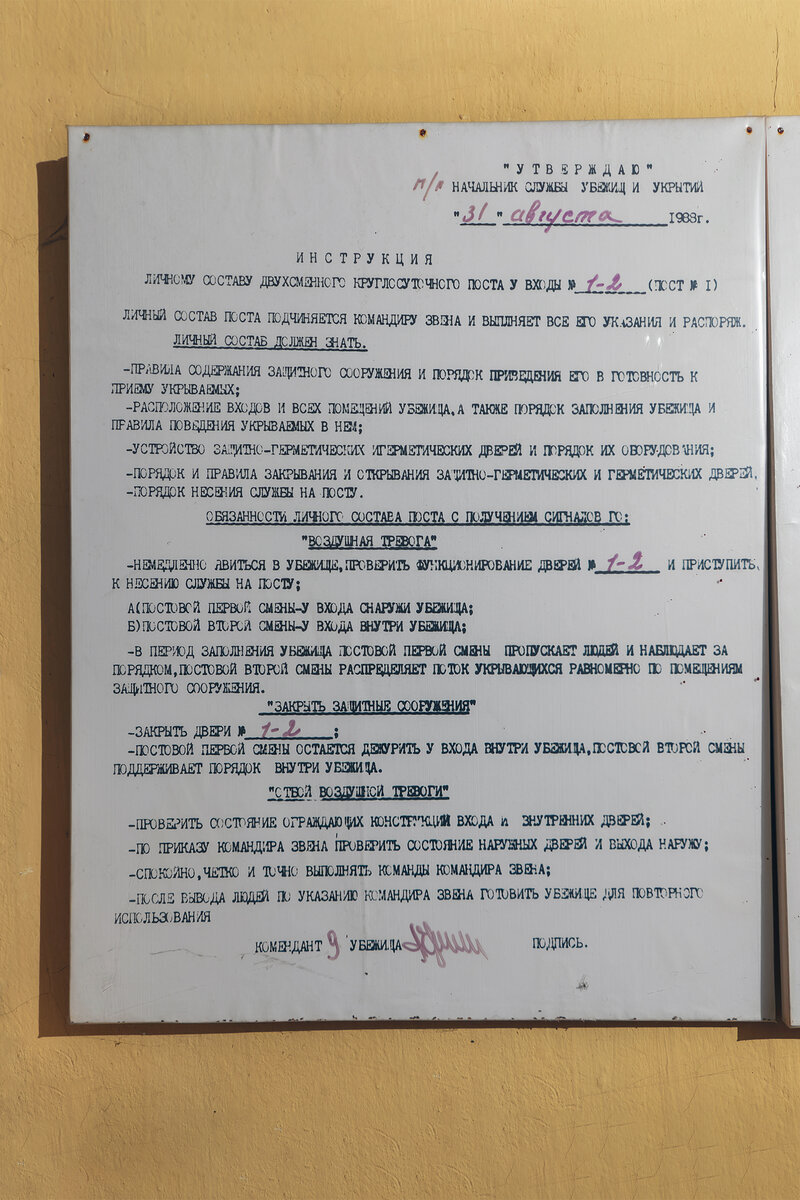 "УТВЕРЖДАЮ"
п/п НАЧАЛЬНИК СЛУЖБЫ УБЕЖИЩ И УКРЫТИЙ
"31" августа 1983г.
ИНСТРУКЦИЯ
ЛИЧНОМУ СОСТАВУ ДВУХСМЕННОГО КРУГЛОСУТОЧНОГО ПОСТА У ВХОДЫ № 1-2 (ПОСТ № I)
ЛИЧНЫЙ СОСТАВ ПОСТА ПОДЧИНЯЕТСЯ КОМАНДИРУ ЗВЕНА И ВЫПЛНЯЕТ ВСЕ ЕГО УКАЗАНИЯ И РАСПОРЯЖ.
ЛИЧНЫЙ СОСТАБ ДОЛЖЕН ЗНАТЬ.
-ПРАВИЛА СОДЕРЖАНИЯ ЗАЩИТНОГО СООРУЖЕНИЯ И ПОРЯДОК ПРИВЕДЕНИЯ ЕГО В ГОТОВНОСТЬ К
ПРИЕМУ УКРЫВАЕМЫХ;
-РАСПОЛОЖЕНИЕ ВХОДОВ И ВСЕХ ПОМЕЩЕНИЙ УБЕЖИЦА,А ТАКЖЕ ПОРЯДОК ЗАПОЛНЕНИЯ УБЕЖИЦА И
ПРАВИЛА ПОВЕДЕНИЯ УКРЫВАЕМЫХ В НЕМ;
-УСТРОЙСТВО ЗАЩИТНО-ГЕРМЕТИЧЕСКИХ ИГЕРМЕТИЧЕСКИХ ДВЕРЕЙ И ПОРЯДОК ИХ ОБОРУДОВАНИЯ;
-ПОРЯДОК И ПРАВИЛА ЗАКРЫВАНИЯ И ОТКРЫВАНИЯ ЗАЩИТНО-ГЕРМЕТИЧЕСКИХ И ГЕРМЕТИЧЕСКИХ ДВЕРЕЙ.
-ПОРЯДОК НЕСЕНИЯ СЛУЖБЫ НА ПОСТУ.
ОБЯЗАННОСТИ ЛИЧНОГО СОСТАВА ПОСТА С ПОЛУЧЕНИЕМ СИГНАЛОВ ГО:
"ВОЗДУШНАЯ ТРЕВОГА"
-НЕМЕДЛЕННО ЯВИТЬСЯ В УБЕЖИЩЕ,ПРОВЕРИТЬ ФУНКЦИОНИРОВАНИЕ ДВЕРЕЙ № 1-2 И ПРИСТУПИТЬ
К НЕСЕНИЮ СЛУЖБЫ НА ПОСТУ;
А(ПОСТОВОЙ ПЕРВОЙ СМЕНЫ-У ВХОДА СНАРУЖИ УБЕЖИЦА;
Б)ПОСТОВОЙ ВТОРОЙ СМЕНЫ-У ВХОДА ВНУТРИ УБЕЖИЦА;
-В ПЕРИОД ЗАПОЛНЕНИЯ УБЕЖИЩА ПОСТОВОЙ ПЕРВОЙ СМЕНЫ ПРОПУСКАЕТ ЛЮДЕЙ И НАБЛЮДАЕТ ЗА
ПОРЯДКОМ,ПОСТОВОЙ ВТОРОЙ СМЕНЫ РАСПРЕДЕЛЯЕТ ПОТОК УКРЫВАЮЩИХСЯ РАВНОМЕРНО ПО ПОМЕЩЕНИЯМ
ЗАЩИТНОГО СООРУЖЕНИЯ.
"ЗАКРЫТЬ ЗАЩИТНЫЕ СООРУЖЕНИЯ"
-ЗАКРЫТЬ ДВЕРИ № 1-2 ;
-ПОСТОВОЙ ПЕРВОЙ СМЕНЫ ОСТАЕТСЯ ДЕЖУРИТЬ У ВХОДА ВНУТРИ УБЕЖИЦА,ПОСТОВОЙ ВТОРОЙ СМЕНЫ
ПОДДЕРЖИВАЕТ ПОРЯДОК ВНУТРИ УБЕЖИЦА.
"ОТБОЙ ВОЗДУШНОЙ ТРЕВОГИ"
-ПРОВЕРИТЬ СОСТОЯНИЕ ОГРАЖДАЮЩИХ КОНСТРУКЦИЙ ВХОДА И ВНУТРЕННИХ ДВЕРЕЙ;
-ПО ПРИКАЗУ КОМАНДИРА ЗВЕНА ПРОВЕРИТЬ СОСТОЯНИЕ НАРУЖНЫХ ДВЕРЕЙ И ВЫХОДА НАРУЖУ;
-СПОКОЙНО,ЧЕТКО И ТОЧНО ВЫПОЛНЯТЬ КОМАНДЫ КОМАНДИРА ЗВЕНА;
-ПОСЛЕ ВЫВОДА ЛЮДЕЙ ПО УКАЗАНИЮ КОМАНДИРА ЗВЕНА ГОТОВИТЬ УБЕЖИЩЕ ДЛЯ ПОВТОРНОГО
ИСПОЛЬЗОВАНИЯ
КОМЕНДАНТ 9 УБЕЖИЦА ПОДПИСЬ.